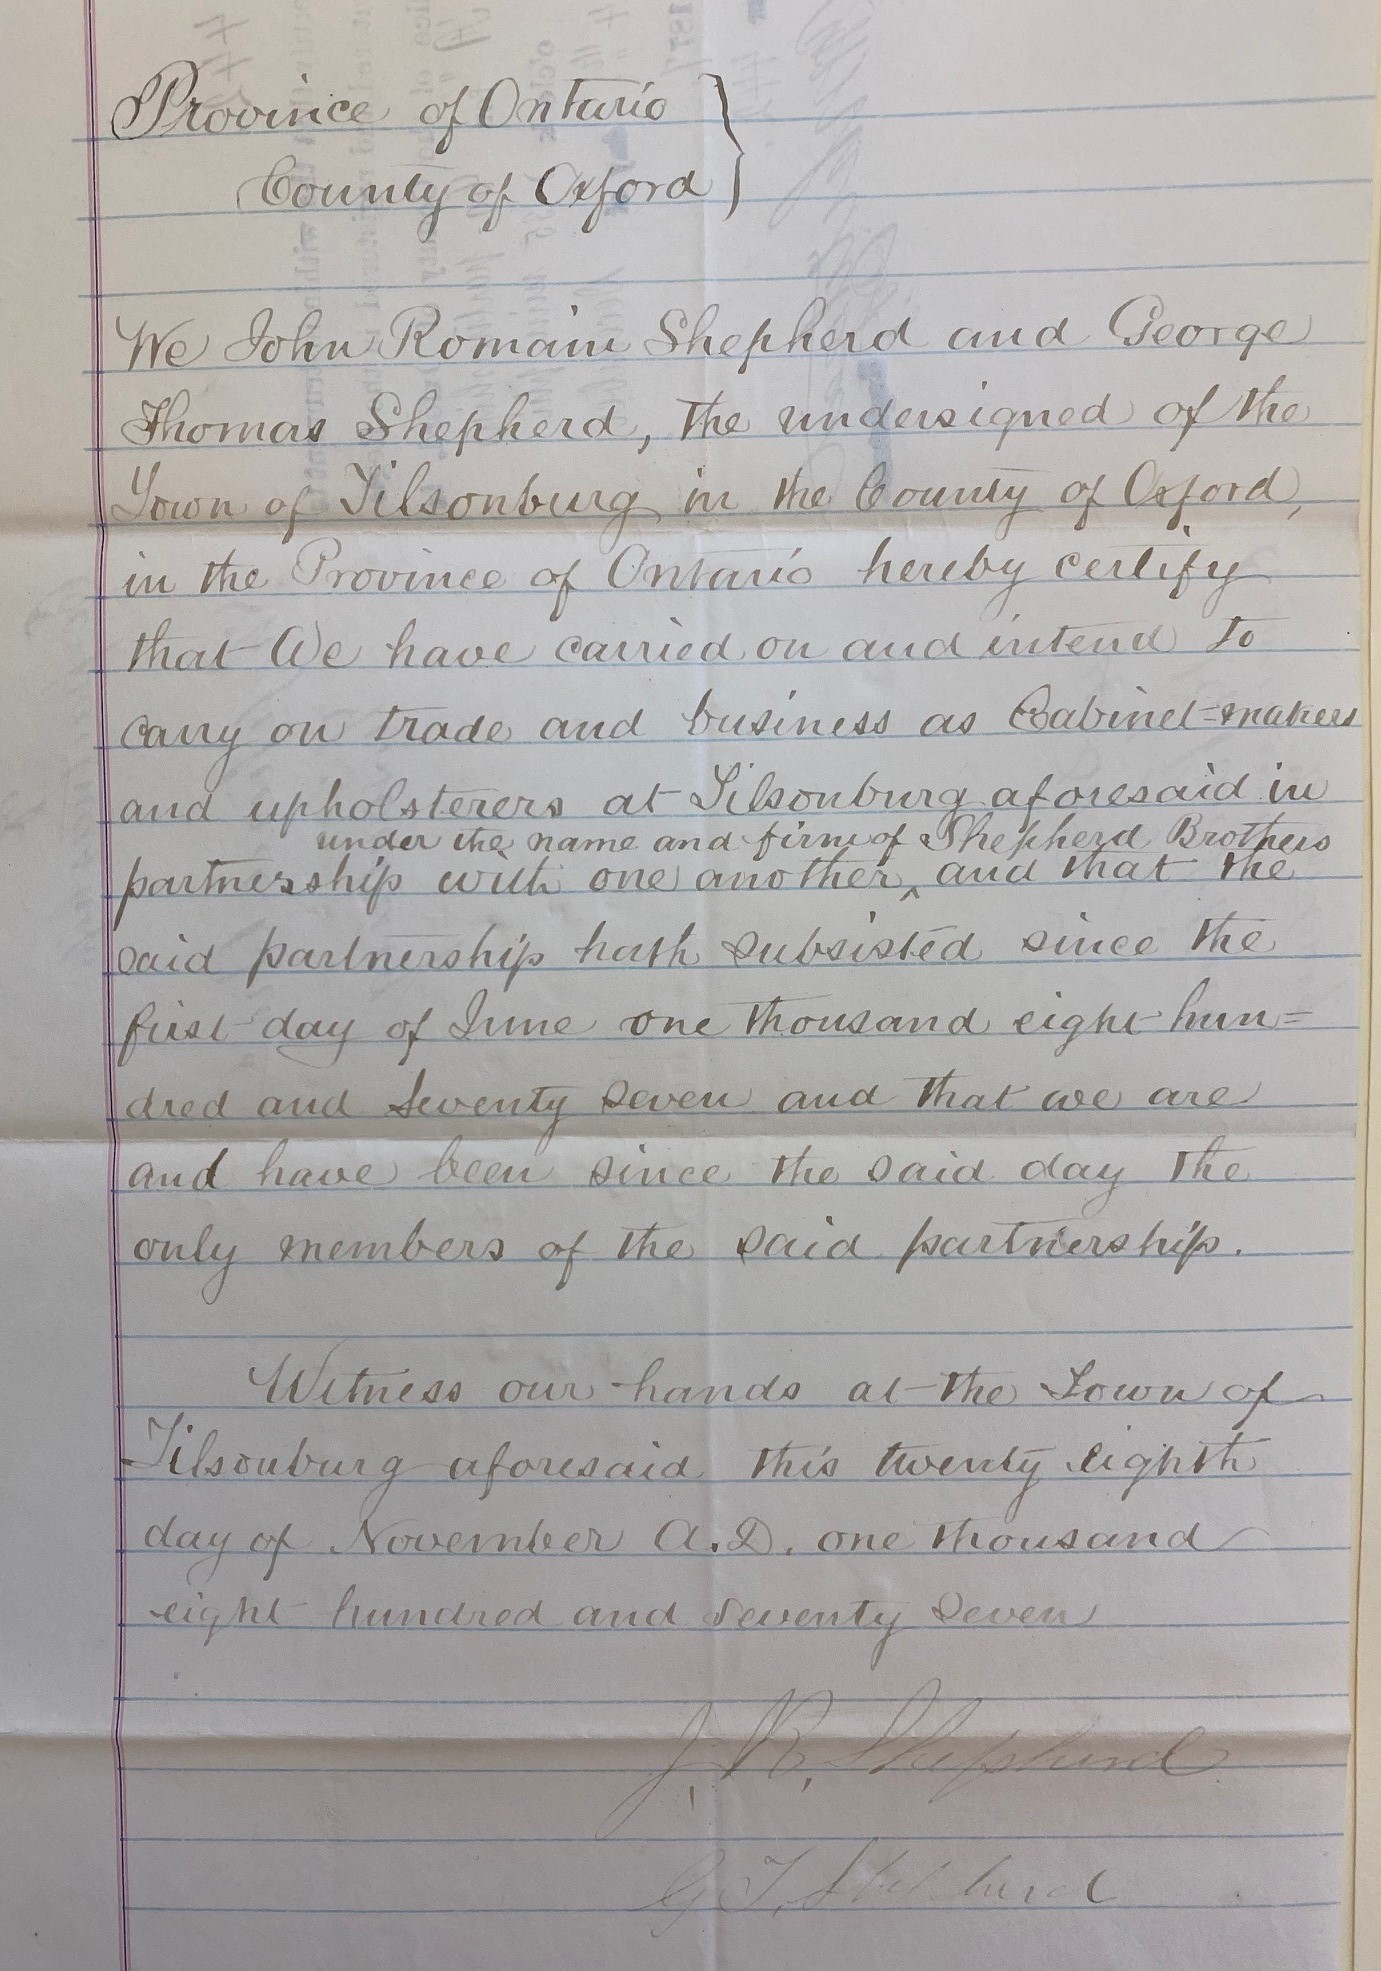 Province of Ontario
County of Oxford
We John Romain Shepherd and George
Thomas Shepherd, the undersigned of the
Town of Tilsonburg in the County of Oxford,
in the Province of Ontario hereby certify
that We have carried on and intend to
carry on trade and business as Cabinet=makers
and upholsterers at Tilsonburg aforesaid in
under the name and firm of Shepherd Brothers
partnership with one another, ^ and that the
said partnership hath subsisted since the
first day of June one thousand eight hun=
dred and Seventy seven and that we are
and have been since the said day the
only members of the said partnership.
Witness our hands at the Town of
Tilsonburg aforesaid this twenty eighth
day of November A.D. one thousand
eight hundred and seventy seven
J. R. Shepherd
G T. Shepherd